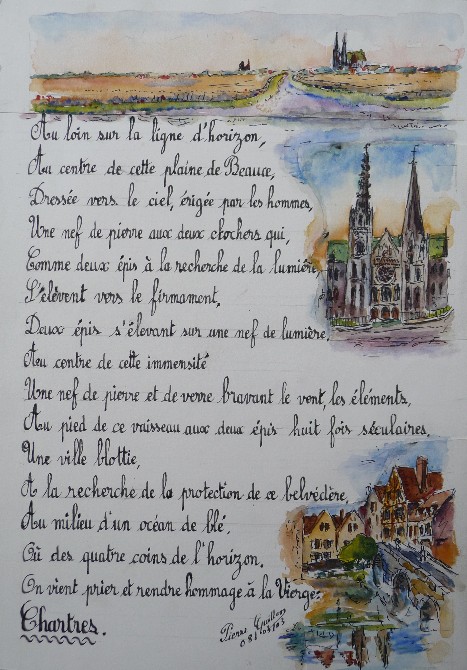 Au loin sur la ligne d'horizon,
Au centre de cette plaine de Beauce,
Dressée vers le ciel, érigée par les hommes,
Une nef de pierre aux deux clochers qui,
Comme deux épis à la recherche de la lumière,
S'élèvent vers le firmament,
Deux épis s'élevant sur une nef de lumière,
Au centre de cette immensité
Une nef de pierre et de verre bravant le vent, les éléments,
Au pied de ce vaisseau aux deux épis huit fois séculaires,
Une ville blottie,
A la recherche de la protection de ce belvédère,
Au milieu d'un océan de blé,
Où des quatre coins de l'horizon,
On vient prier et rendre hommage à la Vierge:
Chartres.
Pierre